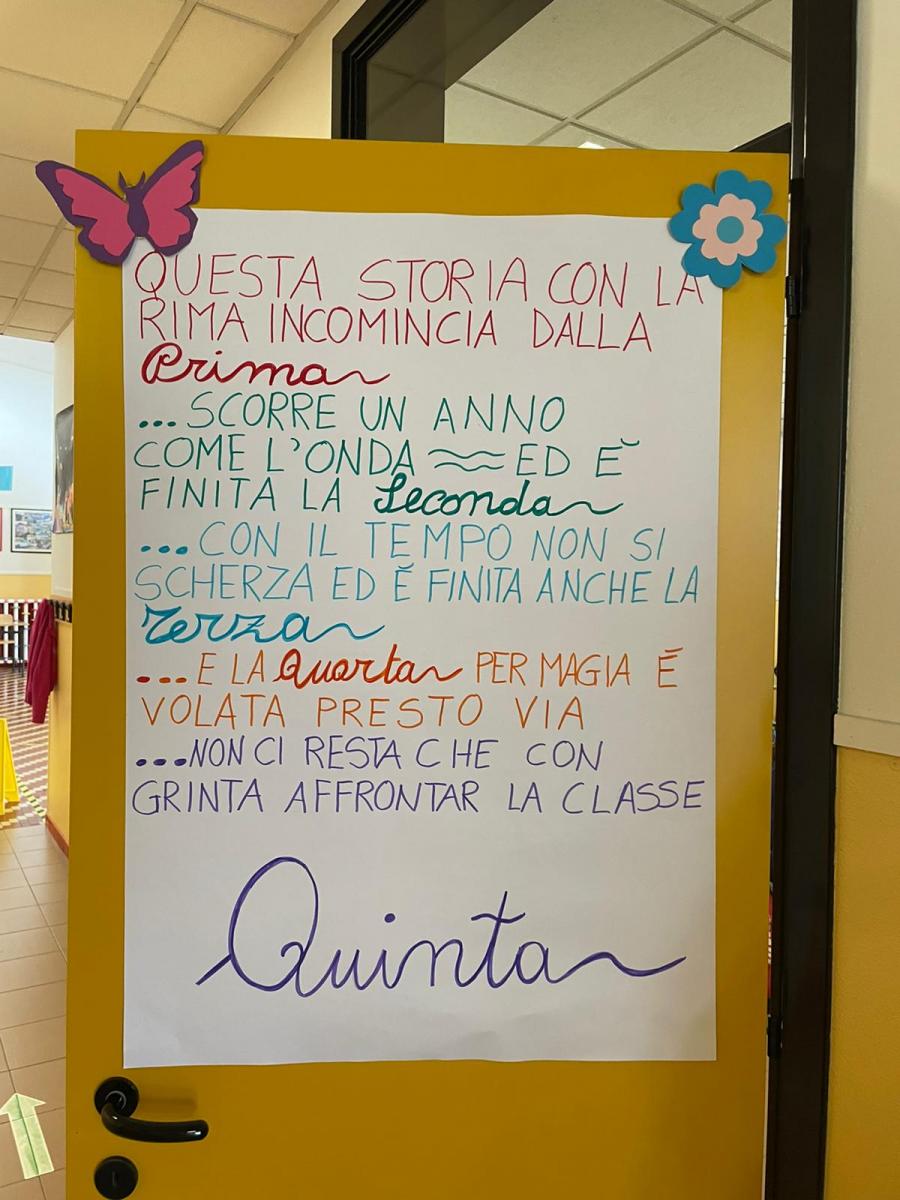 QUESTA STORIA CON LA
RIMA INCOMINCIA DALLA
Prima
...SCORRE UN ANNO
COME L'ONDA ED È
FINITA LA Seconda
...CON IL TEMPO NON SI
SCHERZA ED È FINITA ANCHE LA
Terza
...E LA Quarta PER MAGIA È
VOLATA PRESTO VIA
...NON CI RESTA CHE CON
GRINTA AFFRONTAR LA CLASSE
Quinta